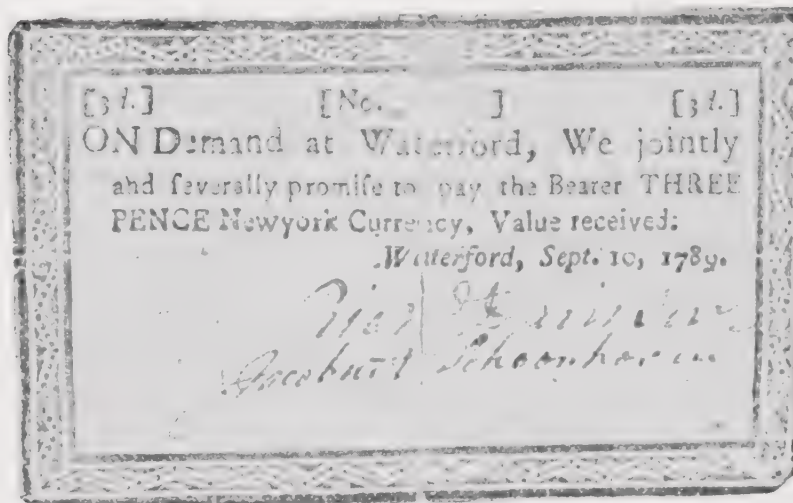 [3 d.] [No. ] [3 d.]
ON Demand at Waterford, We jointly
and ſeverally promiſe to pay the Bearer THREE
PENCE Newyork Currency, Value received:
Waterford, Sept. 10, 1789.
Schoonhoven